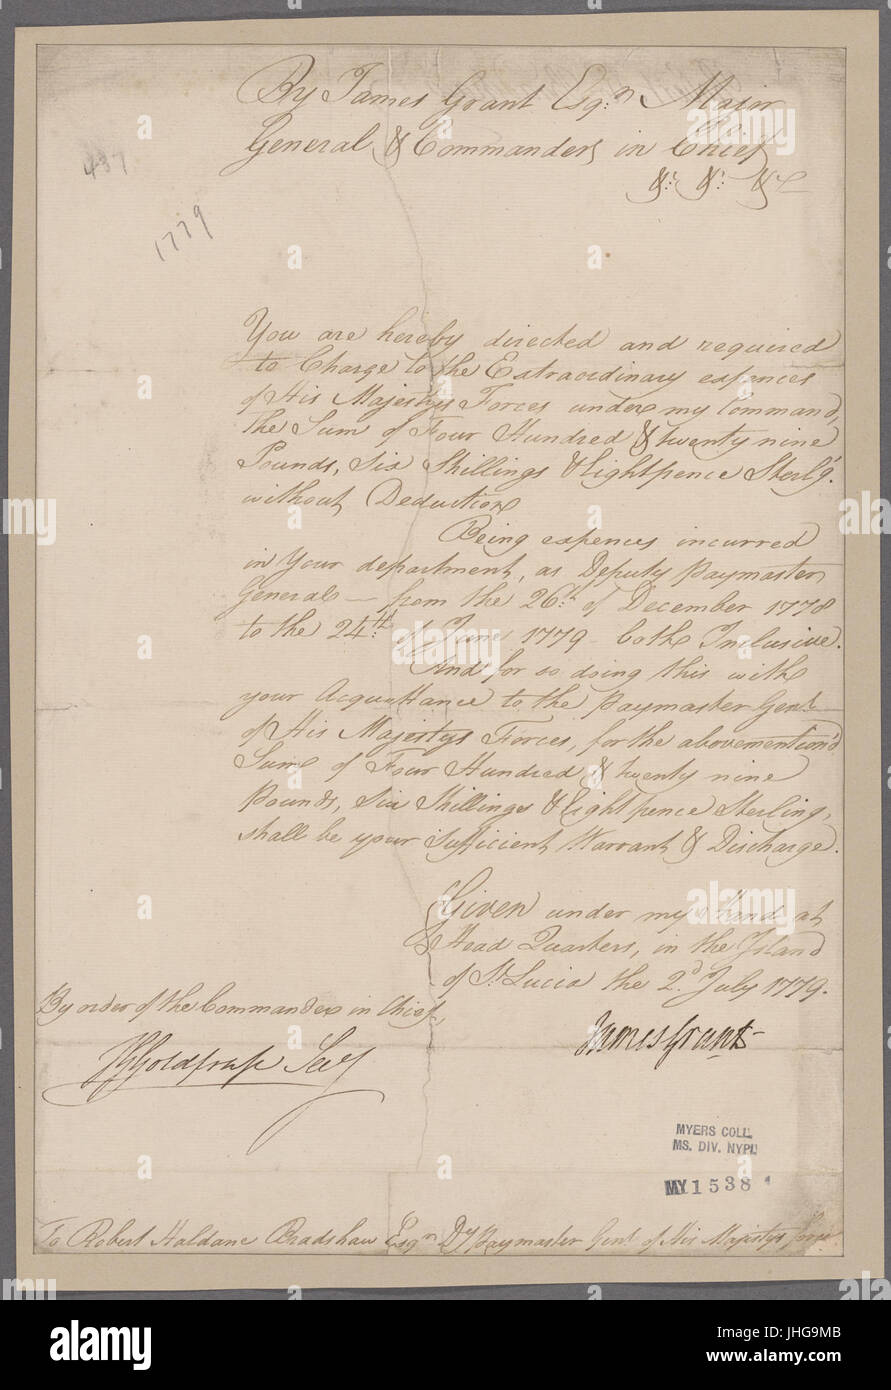 By James Grant Esq:r Major
General & Commander in Chief
&c: &c: &c
437
1779
You are hereby directed and required
to Charge to the Extraordinary expences
of His Majestys Forces under my Command,
the Sum of Four Hundred & twenty nine
Pounds, Six Shillings & Eightpence Sterlg.
without Deduction
Being expences incurred
in Your department, as Deputy Paymaster
General — from the 26th: of December 1778
to the 24th: of June 1779 both Inclusive.
And for so doing this with
your Acquittance to the Paymaster Genl.
of His Majestys Forces, for the abovemention'd
Sum of Four Hundred & twenty nine
Pounds, Six Shillings & Eight pence Sterling,
shall be your sufficient Warrant & Discharge.
Given under my Hand at
Head Quarters, in the Island
of St. Lucia the 2d. July 1779.
By order of the Commander in Chief,
James Grant
Goldfrap Secy
MYERS COLL.
MS. DIV. NYPL
MY 1538
To Robert Haldane Bradshaw Esqr Dy Paymaster Genl of His Majestys forces
alamy
Image ID: JHG9MB
www.alamy.com